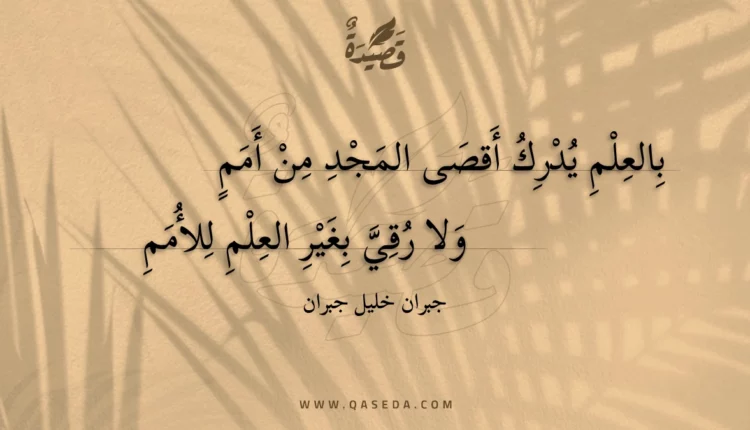 قَصِيْدَةٌ
بِالعِلْمِ يُدْرِكُ أَقصَى المَجْدِ مِنْ أَمَمٍ
وَلا رُقِيَّ بِغَيْرِ العِلْمِ لِلأُمَمِ
جبران خليل جبران
WWW.QASEDA.COM